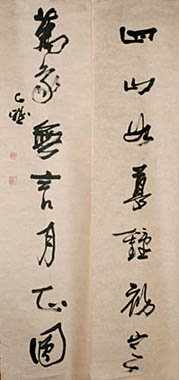 四山如暮鐘初定
萬象無言月正圓